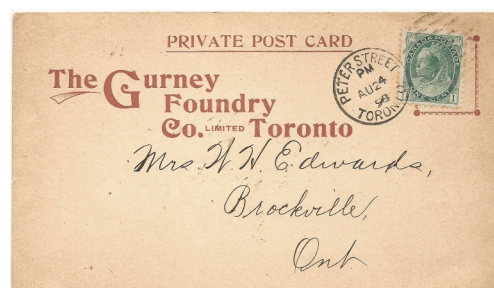 PRIVATE POST CARD
The Gurney
Foundry
Co. LIMITED Toronto
PETER STREET
PM
AU 24
99
TORONTO
CANADA POSTAGE
ONE CENT
1
Mrs. W. H. Edwards,
Brockville,
Ont.